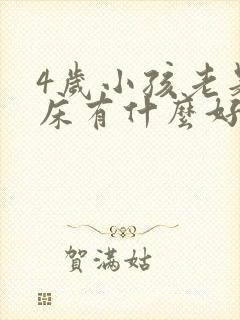 4歲小孩老
床有什麼好
賀滿姑